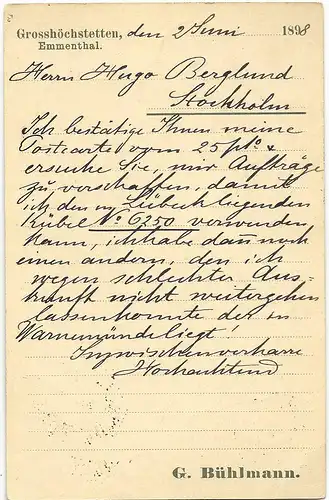 Grosshöchstetten, den 2 Juni 1898
Emmenthal.
Herrn Hugo Berglund
Stockholm
Ich bestätige Ihnen meine
Postcarte vom 25 pto &
ersuche Sie, mir Aufträge
zu verschaffen, damit
ich den in Lübeck liegenden
Kübel No 6250 verwenden
kann, ich habe dann noch
einen andern, den ich
wegen schlechter Aus-
kunft nicht weitergehen
lassen konnte der in
Warnemünde liegt!
Inzwischen verharre
Hochachtend
G. Bühlmann.